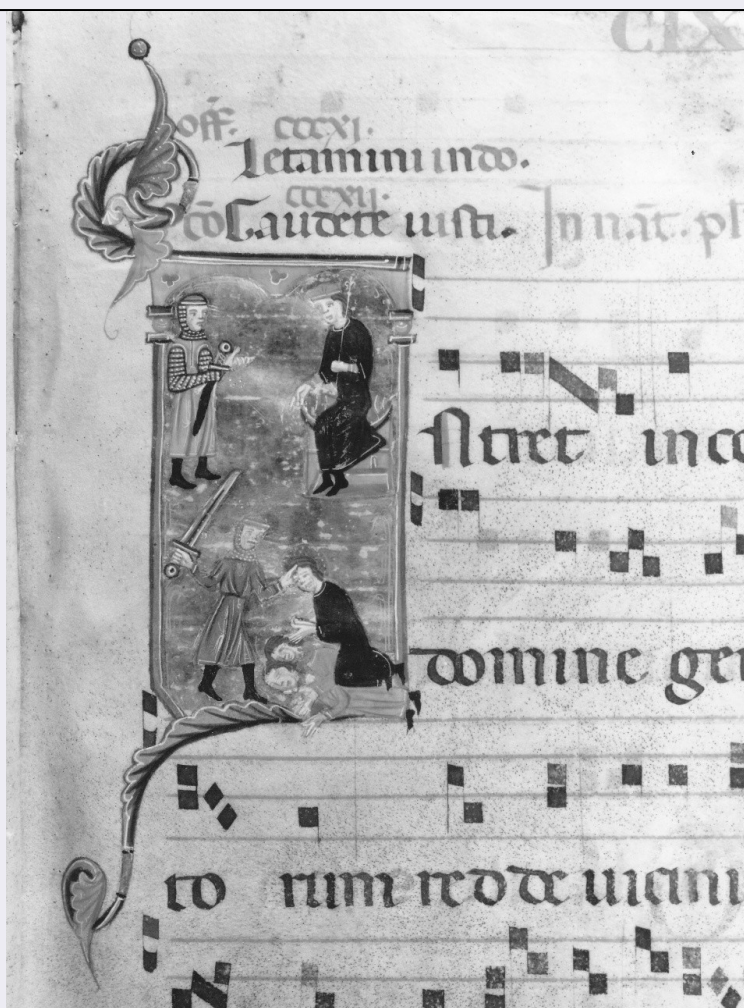 CIX
off. cccxi.
Letamini in do.
cccxii.
cō Gaudete iusti. In nat. pl
I
ntret in co
domine ge
to rum redde uicini